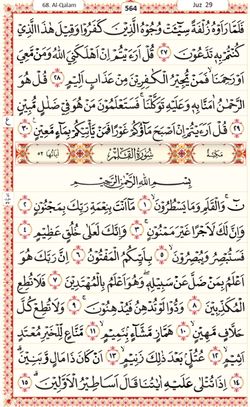 68. Al-Qalam
564
Juz 29
فَلَمَّا رَاَوْهُ زُلْفَةً سِيْٓئَتْ وُجُوْهُ الَّذِيْنَ كَفَرُوْا وَقِيْلَ هٰذَا الَّذِيْ
كُنْتُمْ بِهٖ تَدَّعُوْنَ ۲۷ قُلْ اَرَءَيْتُمْ اِنْ اَهْلَكَنِيَ اللّٰهُ وَمَنْ مَّعِيَ
اَوْ رَحِمَنَا ۙ فَمَنْ يُّجِيْرُ الْكٰفِرِيْنَ مِنْ عَذَابٍ اَلِيْمٍ ۲۸ قُلْ هُوَ
الرَّحْمٰنُ اٰمَنَّا بِهٖ وَعَلَيْهِ تَوَكَّلْنَا ۚ فَسَتَعْلَمُوْنَ مَنْ هُوَ فِيْ ضَلٰلٍ مُّبِيْنٍ
۲۹ قُلْ اَرَءَيْتُمْ اِنْ اَصْبَحَ مَآؤُكُمْ غَوْرًا فَمَنْ يَّاْتِيْكُمْ بِمَآءٍ مَّعِيْنٍ ۳۰
مَكِّيَّةٌ سُوْرَةُ الْقَلَمِ اٰيَاتُهَا ۵۲
بِسْمِ اللّٰهِ الرَّحْمٰنِ الرَّحِيْمِ
نٓ ۚ وَالْقَلَمِ وَمَا يَسْطُرُوْنَ ۱ مَآ اَنْتَ بِنِعْمَةِ رَبِّكَ بِمَجْنُوْنٍ ۲
وَاِنَّ لَكَ لَاَجْرًا غَيْرَ مَمْنُوْنٍ ۳ وَاِنَّكَ لَعَلٰى خُلُقٍ عَظِيْمٍ ۴
فَسَتُبْصِرُ وَيُبْصِرُوْنَ ۵ بِاَيِّكُمُ الْمَفْتُوْنُ ۶ اِنَّ رَبَّكَ هُوَ
اَعْلَمُ بِمَنْ ضَلَّ عَنْ سَبِيْلِهٖ ۪ وَهُوَ اَعْلَمُ بِالْمُهْتَدِيْنَ ۷ فَلَا تُطِعِ
الْمُكَذِّبِيْنَ ۸ وَدُّوْا لَوْ تُدْهِنُ فَيُدْهِنُوْنَ ۹ وَلَا تُطِعْ كُلَّ
حَلَّافٍ مَّهِيْنٍ ۱۰ هَمَّازٍ مَّشَّآءٍ بِنَمِيْمٍ ۱۱ مَّنَّاعٍ لِّلْخَيْرِ مُعْتَدٍ
اَثِيْمٍ ۱۲ عُتُلٍّ بَعْدَ ذٰلِكَ زَنِيْمٍ ۱۳ اَنْ كَانَ ذَا مَالٍ وَّبَنِيْنَ
۱۴ اِذَا تُتْلٰى عَلَيْهِ اٰيٰتُنَا قَالَ اَسَاطِيْرُ الْاَوَّلِيْنَ ۱۵